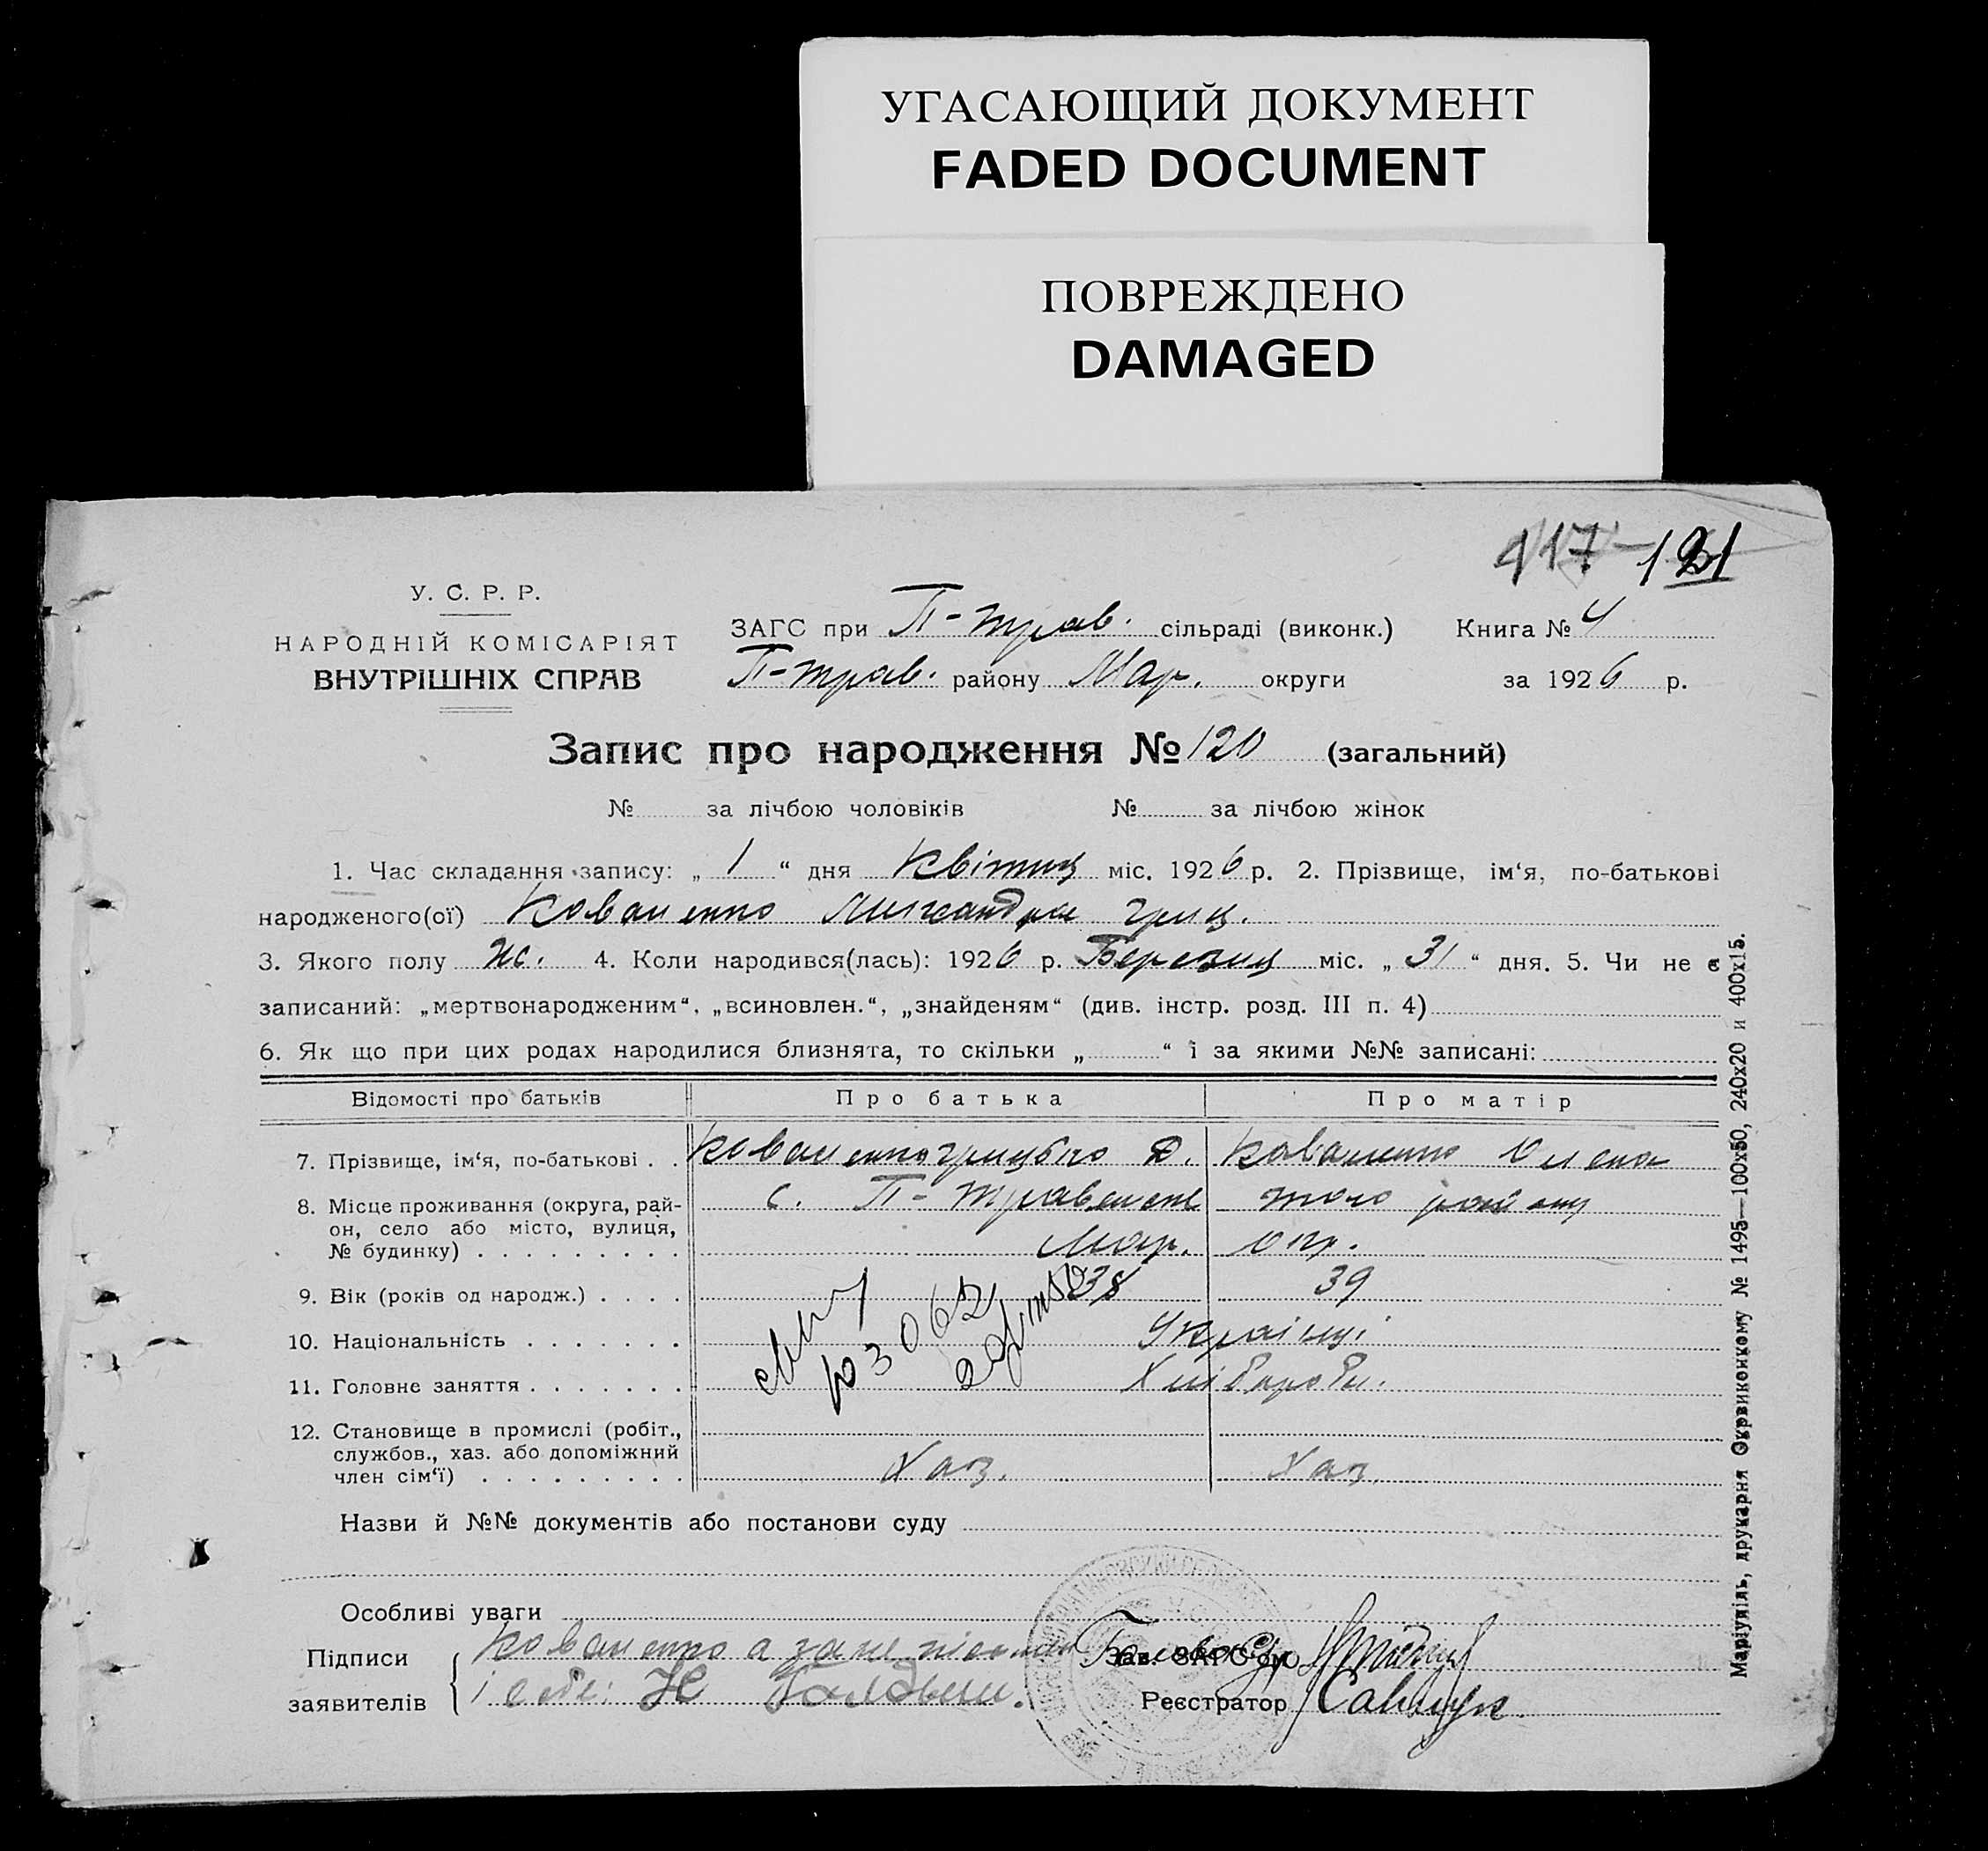 УГАСАЮЩИЙ ДОКУМЕНТ
FADED DOCUMENT
ПОВРЕЖДЕНО
DAMAGED
117 - 121
У. С. Р. Р.
НАРОДНІЙ КОМІСАРІЯТ
ВНУТРІШНІХ СПРАВ
ЗАГС при П-трав. сільраді (виконк.) Книга № 4
П-трав. району Мар. округи за 1926 р.
Запис про народження № 120 (загальний)
№ за лічбою чоловіків № за лічбою жінок
1. Час складання запису: „ 1 “ дня Квітня міс. 1926 р. 2. Прізвище, ім‘я, по-батькові
народженого(ої) Коваленко Олександра Гриц.
3. Якого полу ж. 4. Коли народився(лась): 1926 р. Березня міс. „ 31 “ дня. 5. Чи не є
записаний: „мертвонародженим“, „всиновлен.“, „знайденям“ (див. інстр. розд. III п. 4)
6. Як що при цих родах народилися близнята, то скільки „ “ і за якими №№ записані:
Відомості про батьків Про батька Про матір
7. Прізвище, ім‘я, по-батькові . . Коваленко Грицько Д. Коваленко Олена
8. Місце проживання (округа, рай-
он, село або місто, вулиця,
№ будинку) . . . . . . . . .
с. П- того району
Мар. окр.
9. Вік (років од народж.) . . . . 38 39
10. Національність . . . . . . . Українці
11. Головне заняття . . . . . . . Хлібороби.
12. Становище в промислі (робіт.,
службов., хаз. або допоміжний
член сім‘ї) . . . . . . . . .
Хаз. Хаз.
Назви й №№ документів або постанови суду
Особливі уваги
Підписи Коваленко а за не Зав. ЗАГС‘ом
заявителів і себе: Реєстратор
Маріупіль, друкарня Окрвиконкому № 1495—100x50, 240x20 и 400x15.